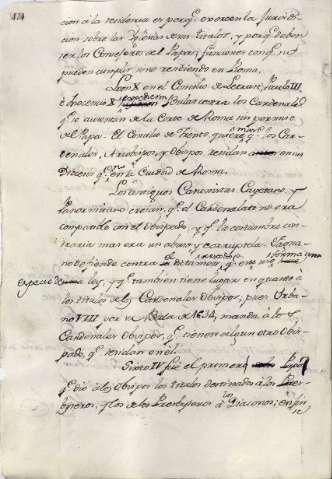 cion à la residencia es porq.e exercen la Jurisdic-
cion sobre las Iglesias de sus titulos, y porq.e deben
ser los Consejeros del Papa; funciones con q.e no
pueden cumplir sino residiendo en Roma.
Leon X en el Concilio de Letran, Paulo III
è Inocencio X expidieron Bulas contra los Cardenales
que se ausentan de la Corte de Roma sin permiso
del Papa. El Concilio de Trento quiere q.e los Car-
denales, Arzobispos, y Obispos residan en su
Diocesi q.e en la Ciudad de Roma.
Los antiguos Canonistas Cayetano, y
Panormitano creian, q.e el Cardenalato no era
compatible con el Obispado, y q.e la costumbre con-
traria mas era un abuso y corruptela. Fagna-
no defiende contra el dictamen, q.e este uso forma una
especie de ley, y q.e tambien tiene lugar en quanto à
los titulos de los Cardenales Obispos, pues Urba-
no VIII por su Bula de 1634, manda à los
Cardenales Obispos, q.e tienen algun otro Obis-
pado, q.e residan en él.
Sixto IV fue el primer Papa
q.e diò à los Obispos los titulos destinados à los Pres-
byteros; y los de los Presbyteros à los Diaconos; en fin